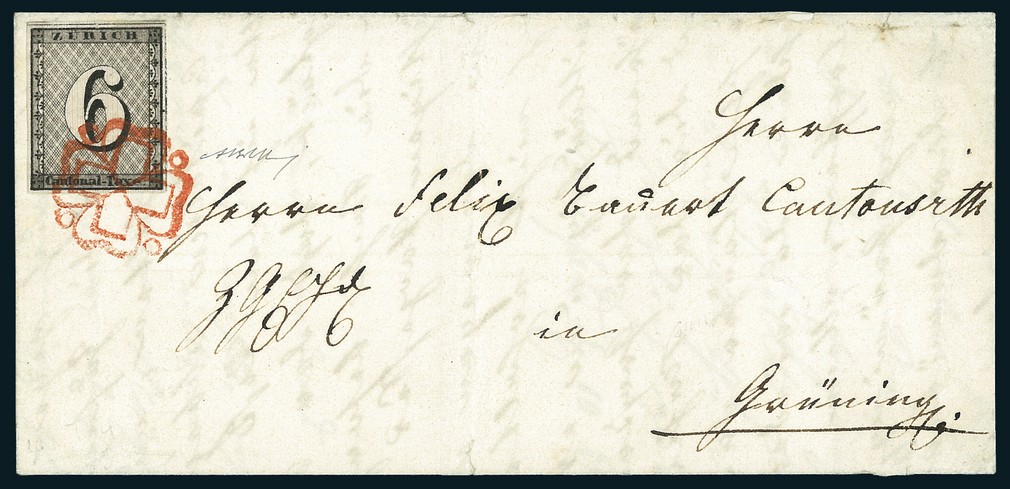 ZÜRICH
6
Cantonal-Taxe
Herrn
Herrn Felix Cantonsrth
in
Grüning.